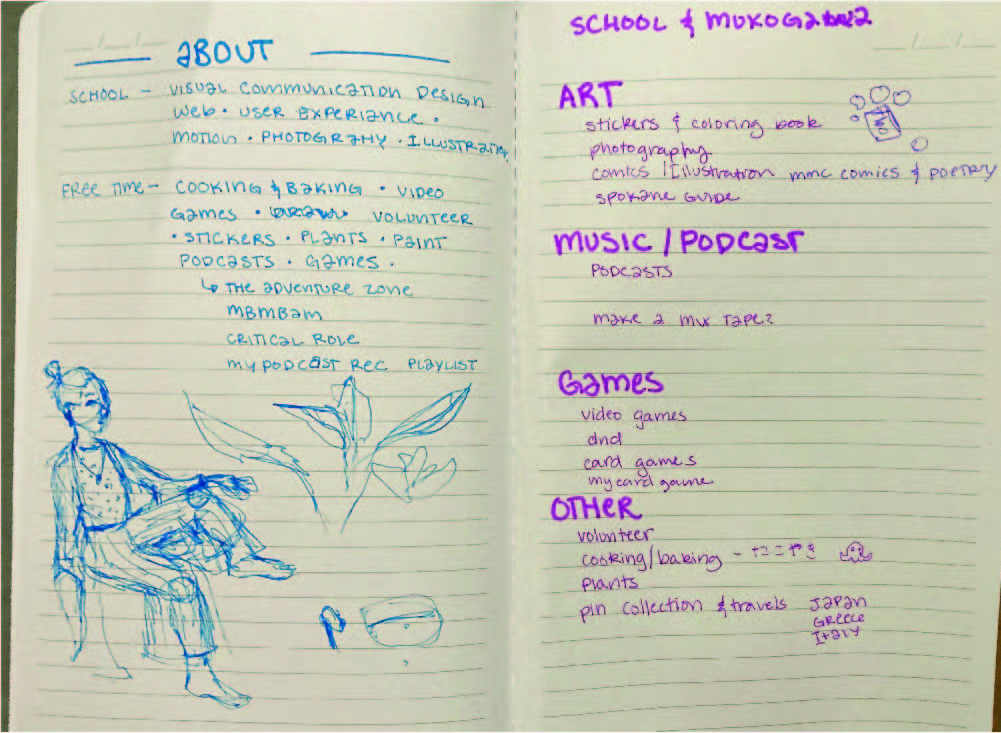 ABOUT
SCHOOL - VISUAL COMMUNICATION DESIGN
WEB · USER EXPERIANCE ·
MOTION · PHOTOGRAPHY · ILLUSTRATION
FREE TIME - COOKING & BAKING · VIDEO
GAMES · DRAW · VOLUNTEER
· STICKERS · PLANTS · PAINT
PODCASTS · GAMES ·
↳ THE ADVENTURE ZONE
MBMBAM
CRITICAL ROLE
MY PODCAST REC PLAYLIST
SCHOOL & MUKOGAWA
ART
stickers & coloring book
photography
comics / Illustration mmc comics & POETRY
SPOKANE GUIDE
MUSIC / PODCAST
PODCASTS
make a mix TAPE?
Games
video games
dnd
card games
my card game
OTHER
volunteer
cooking/baking -
plants
pin collection & travels JAPAN
GREECE
ITALY